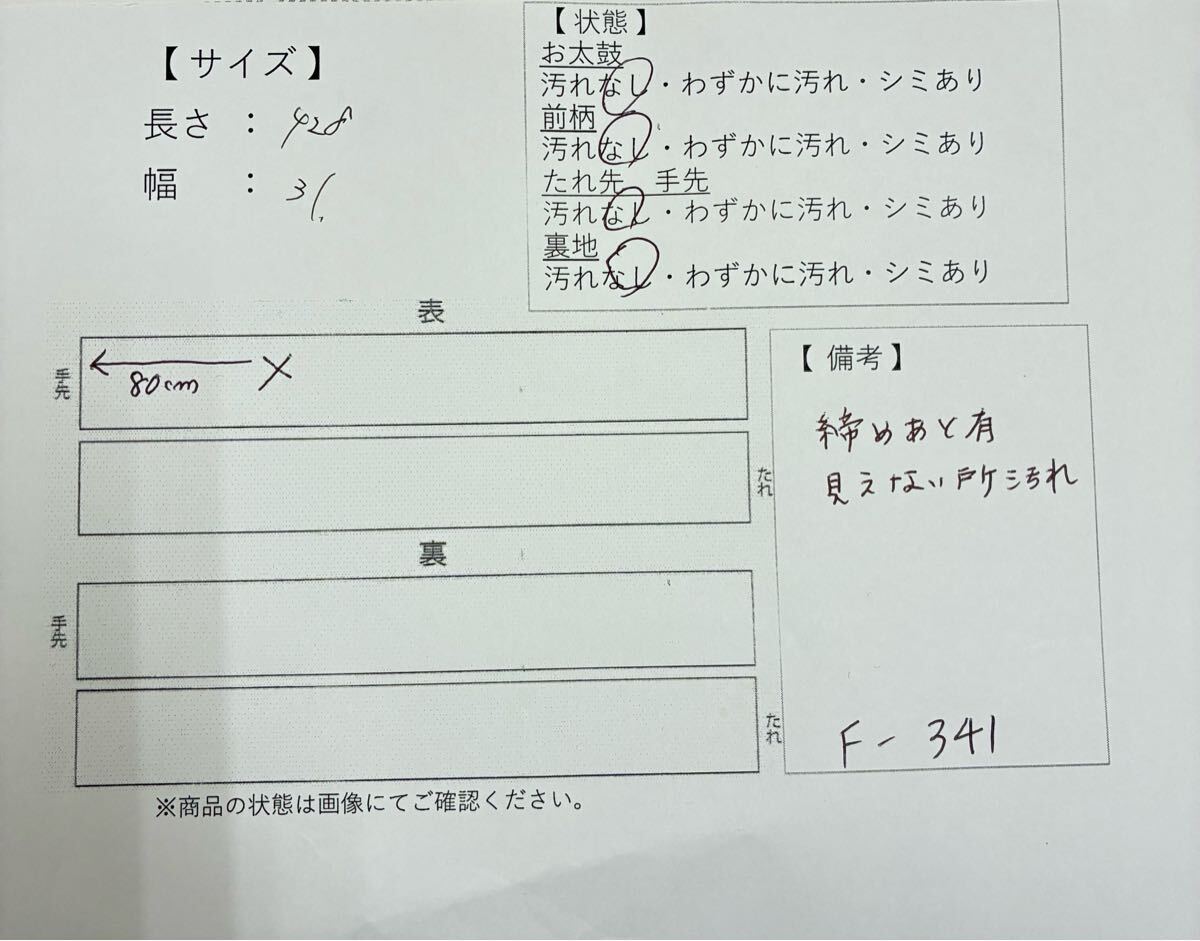 【 サイズ 】
長さ : 428
幅 : 31.
【 状態 】
お太鼓
汚れなし・わずかに汚れ・シミあり
前柄
汚れなし・わずかに汚れ・シミあり
たれ先 手先
汚れなし・わずかに汚れ・シミあり
裏地
汚れなし・わずかに汚れ・シミあり
表
手先
80cm
たれ
裏
手先
たれ
【 備考 】
締めあと有
見えない所汚れ
F- 341
※商品の状態は画像にてご確認ください。